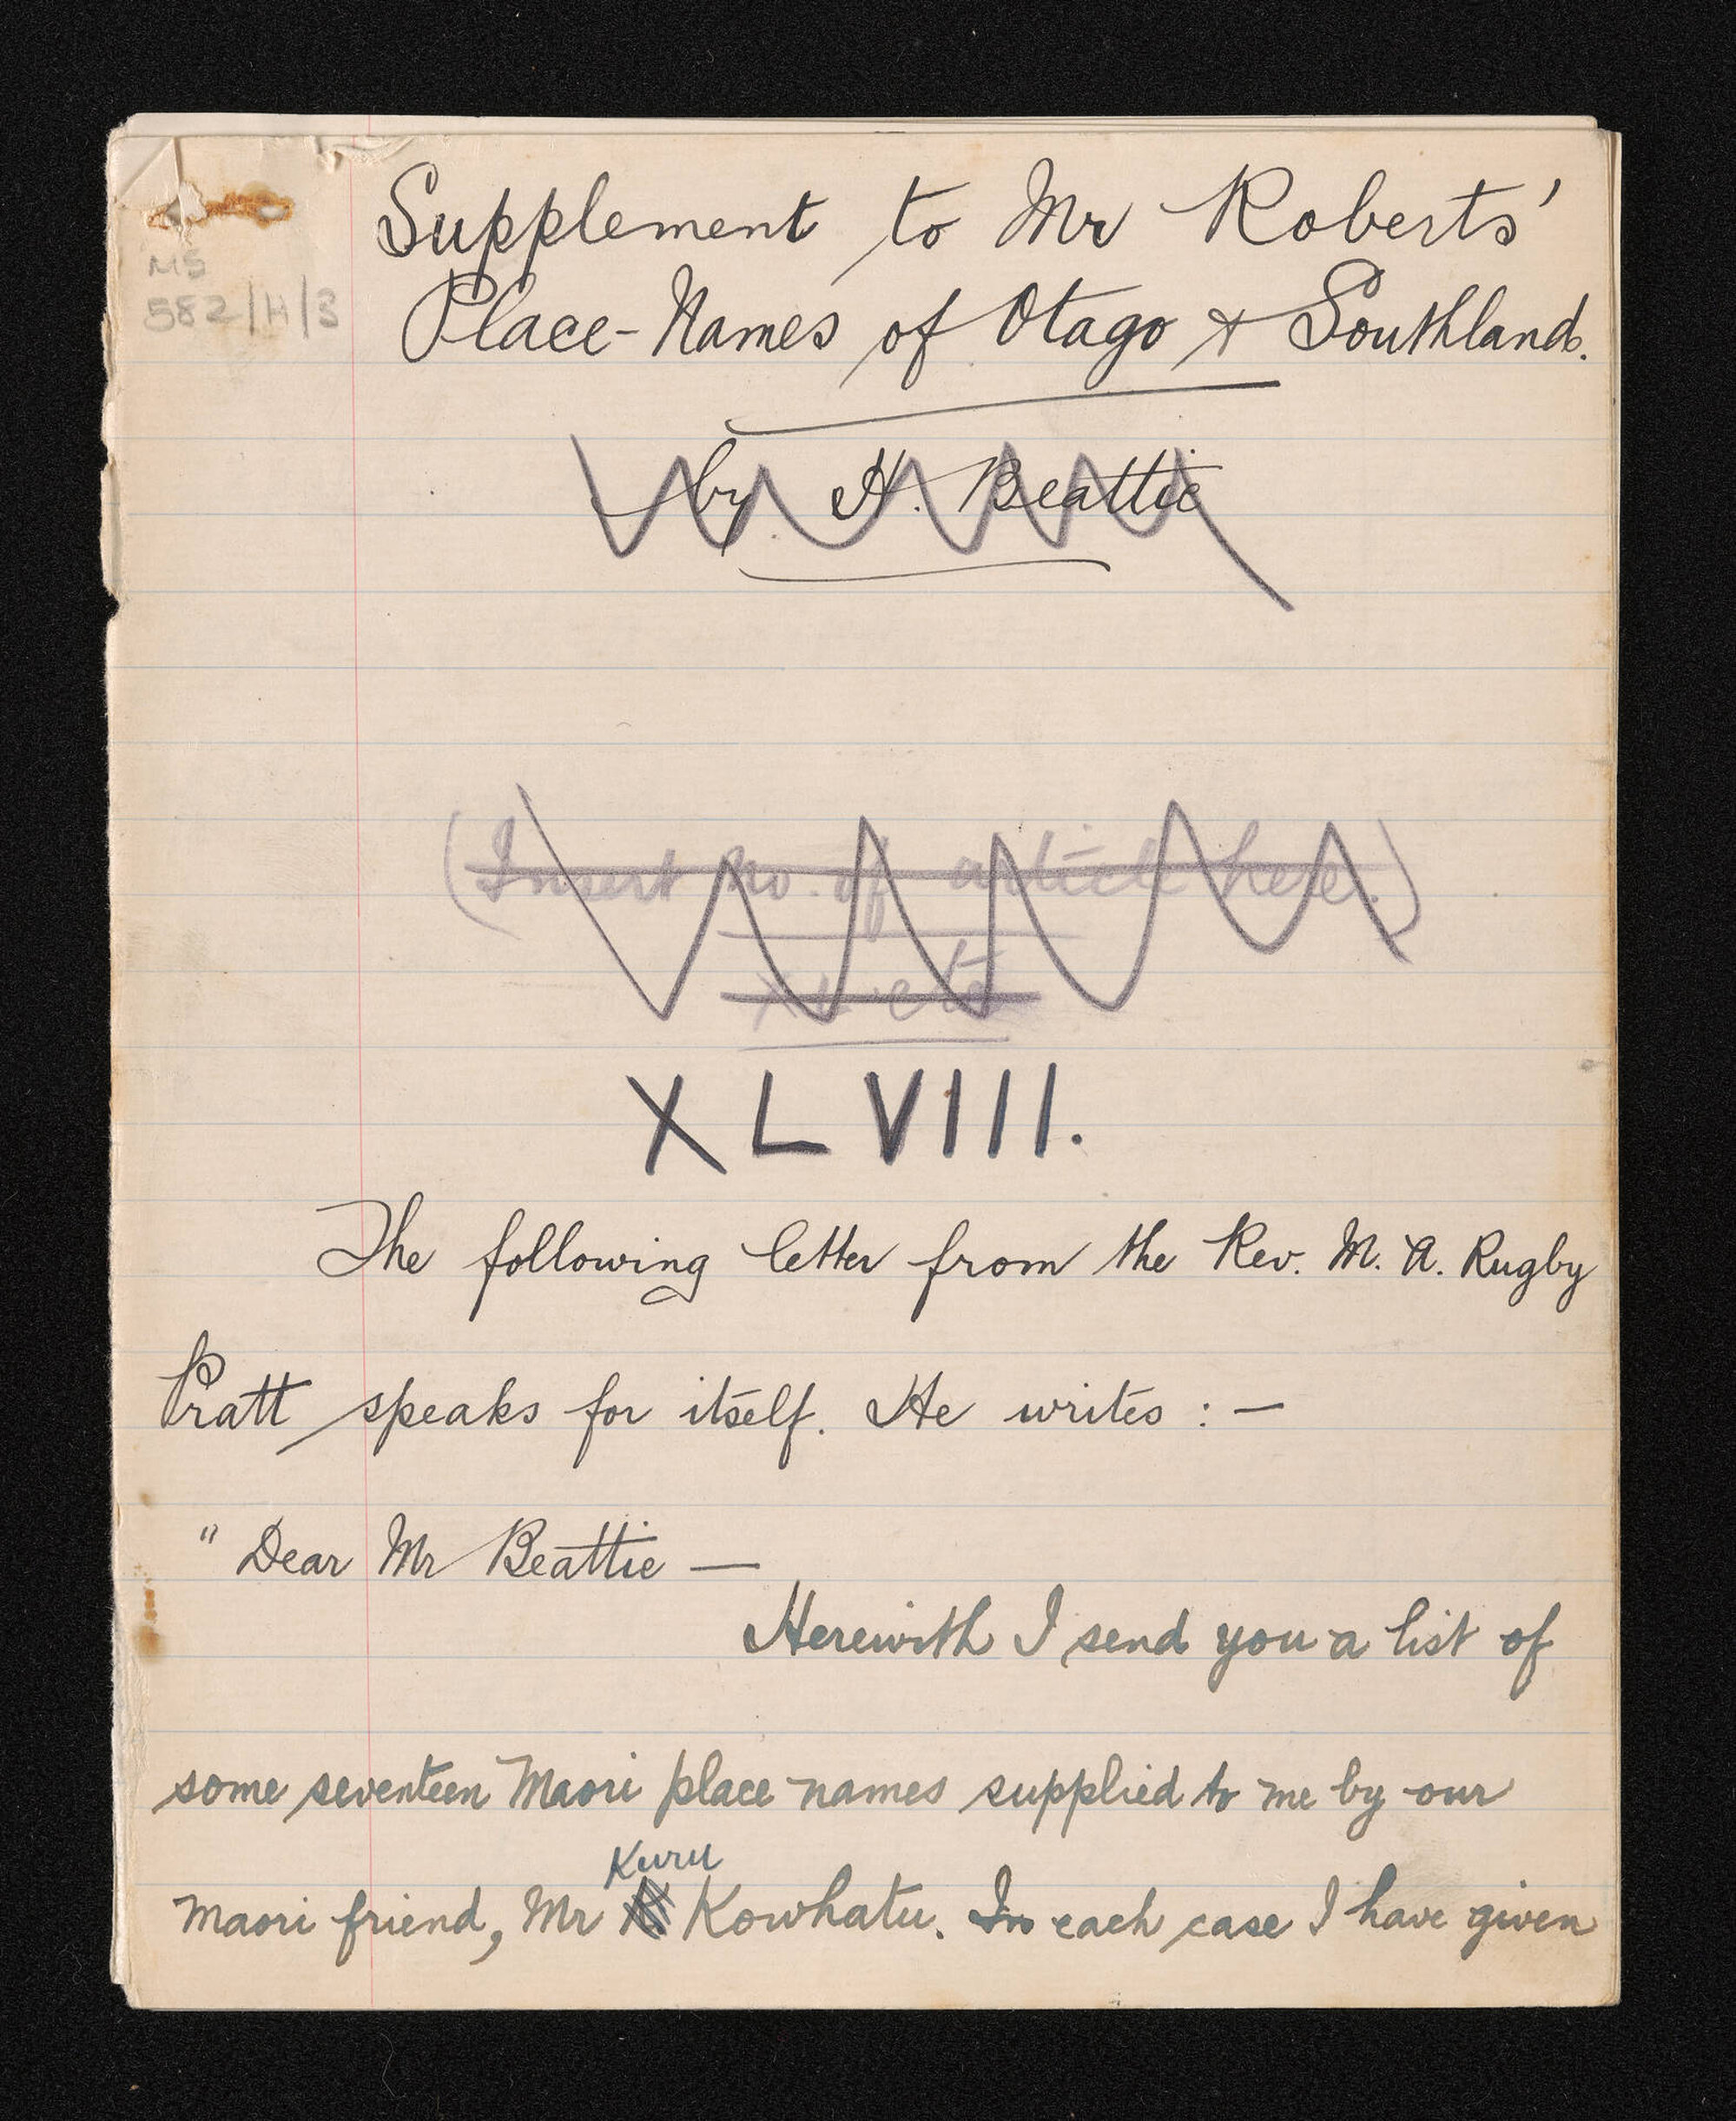 MS
582/H/3
Supplement to Mr Roberts'
Place-Names of Otago & Southland.
by H. Beattie
(Insert no. of article here.)
XLVIII.
The following letter from the Rev. M. A. Rugby
Pratt speaks for itself. He writes :—
"Dear Mr Beattie —
Herewith I send you a list of
some seventeen Maori place names supplied to me by our
Kuru
Maori friend, Mr Kowhatu. In each case I have given